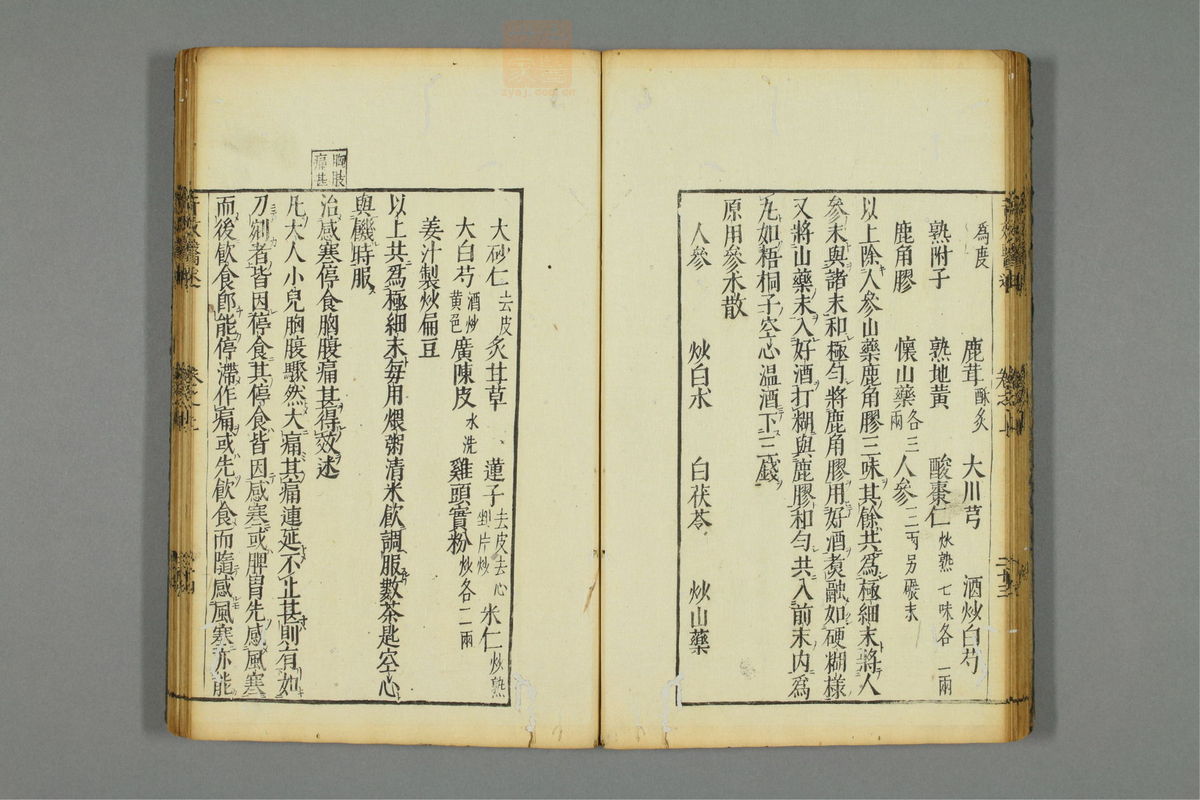 為度
鹿茸酥炙 大川芎 酒炒白芍
熟附子 熟地黃 酸棗仁炒熟七味各一兩
鹿角膠 懷山藥各三兩 人參三兩另碾末
以上除人參山藥鹿角膠三味其餘共為極細末將人
參末與諸末和極勻將鹿角膠用好酒煑融如硬糊樣
又將山藥末入好酒打糊與鹿膠和勻共入前末內為
丸如梧桐子空心温酒下三錢
原用參朮散
人參 炒白朮 白茯苓 炒山藥
大砂仁去皮 炙甘草 蓮子去皮去心剉片炒 米仁炒熟
大白芍酒炒黃色 廣陳皮水洗 雞頭實粉炒各二兩
姜汁製炒扁豆
以上共為極細末每用煨粥清米飲調服數茶匙空心
與機時服
胸肢痛甚
治感寒停食胸腹痛甚得效述
凡大人小兒胸腹驟然大痛其痛連延不止甚則有如
刀剜者皆因停食其停食皆因感寒或脾胃先感風寒
而後飲食郎能停滯作痛或先飲食而隨感風寒亦能